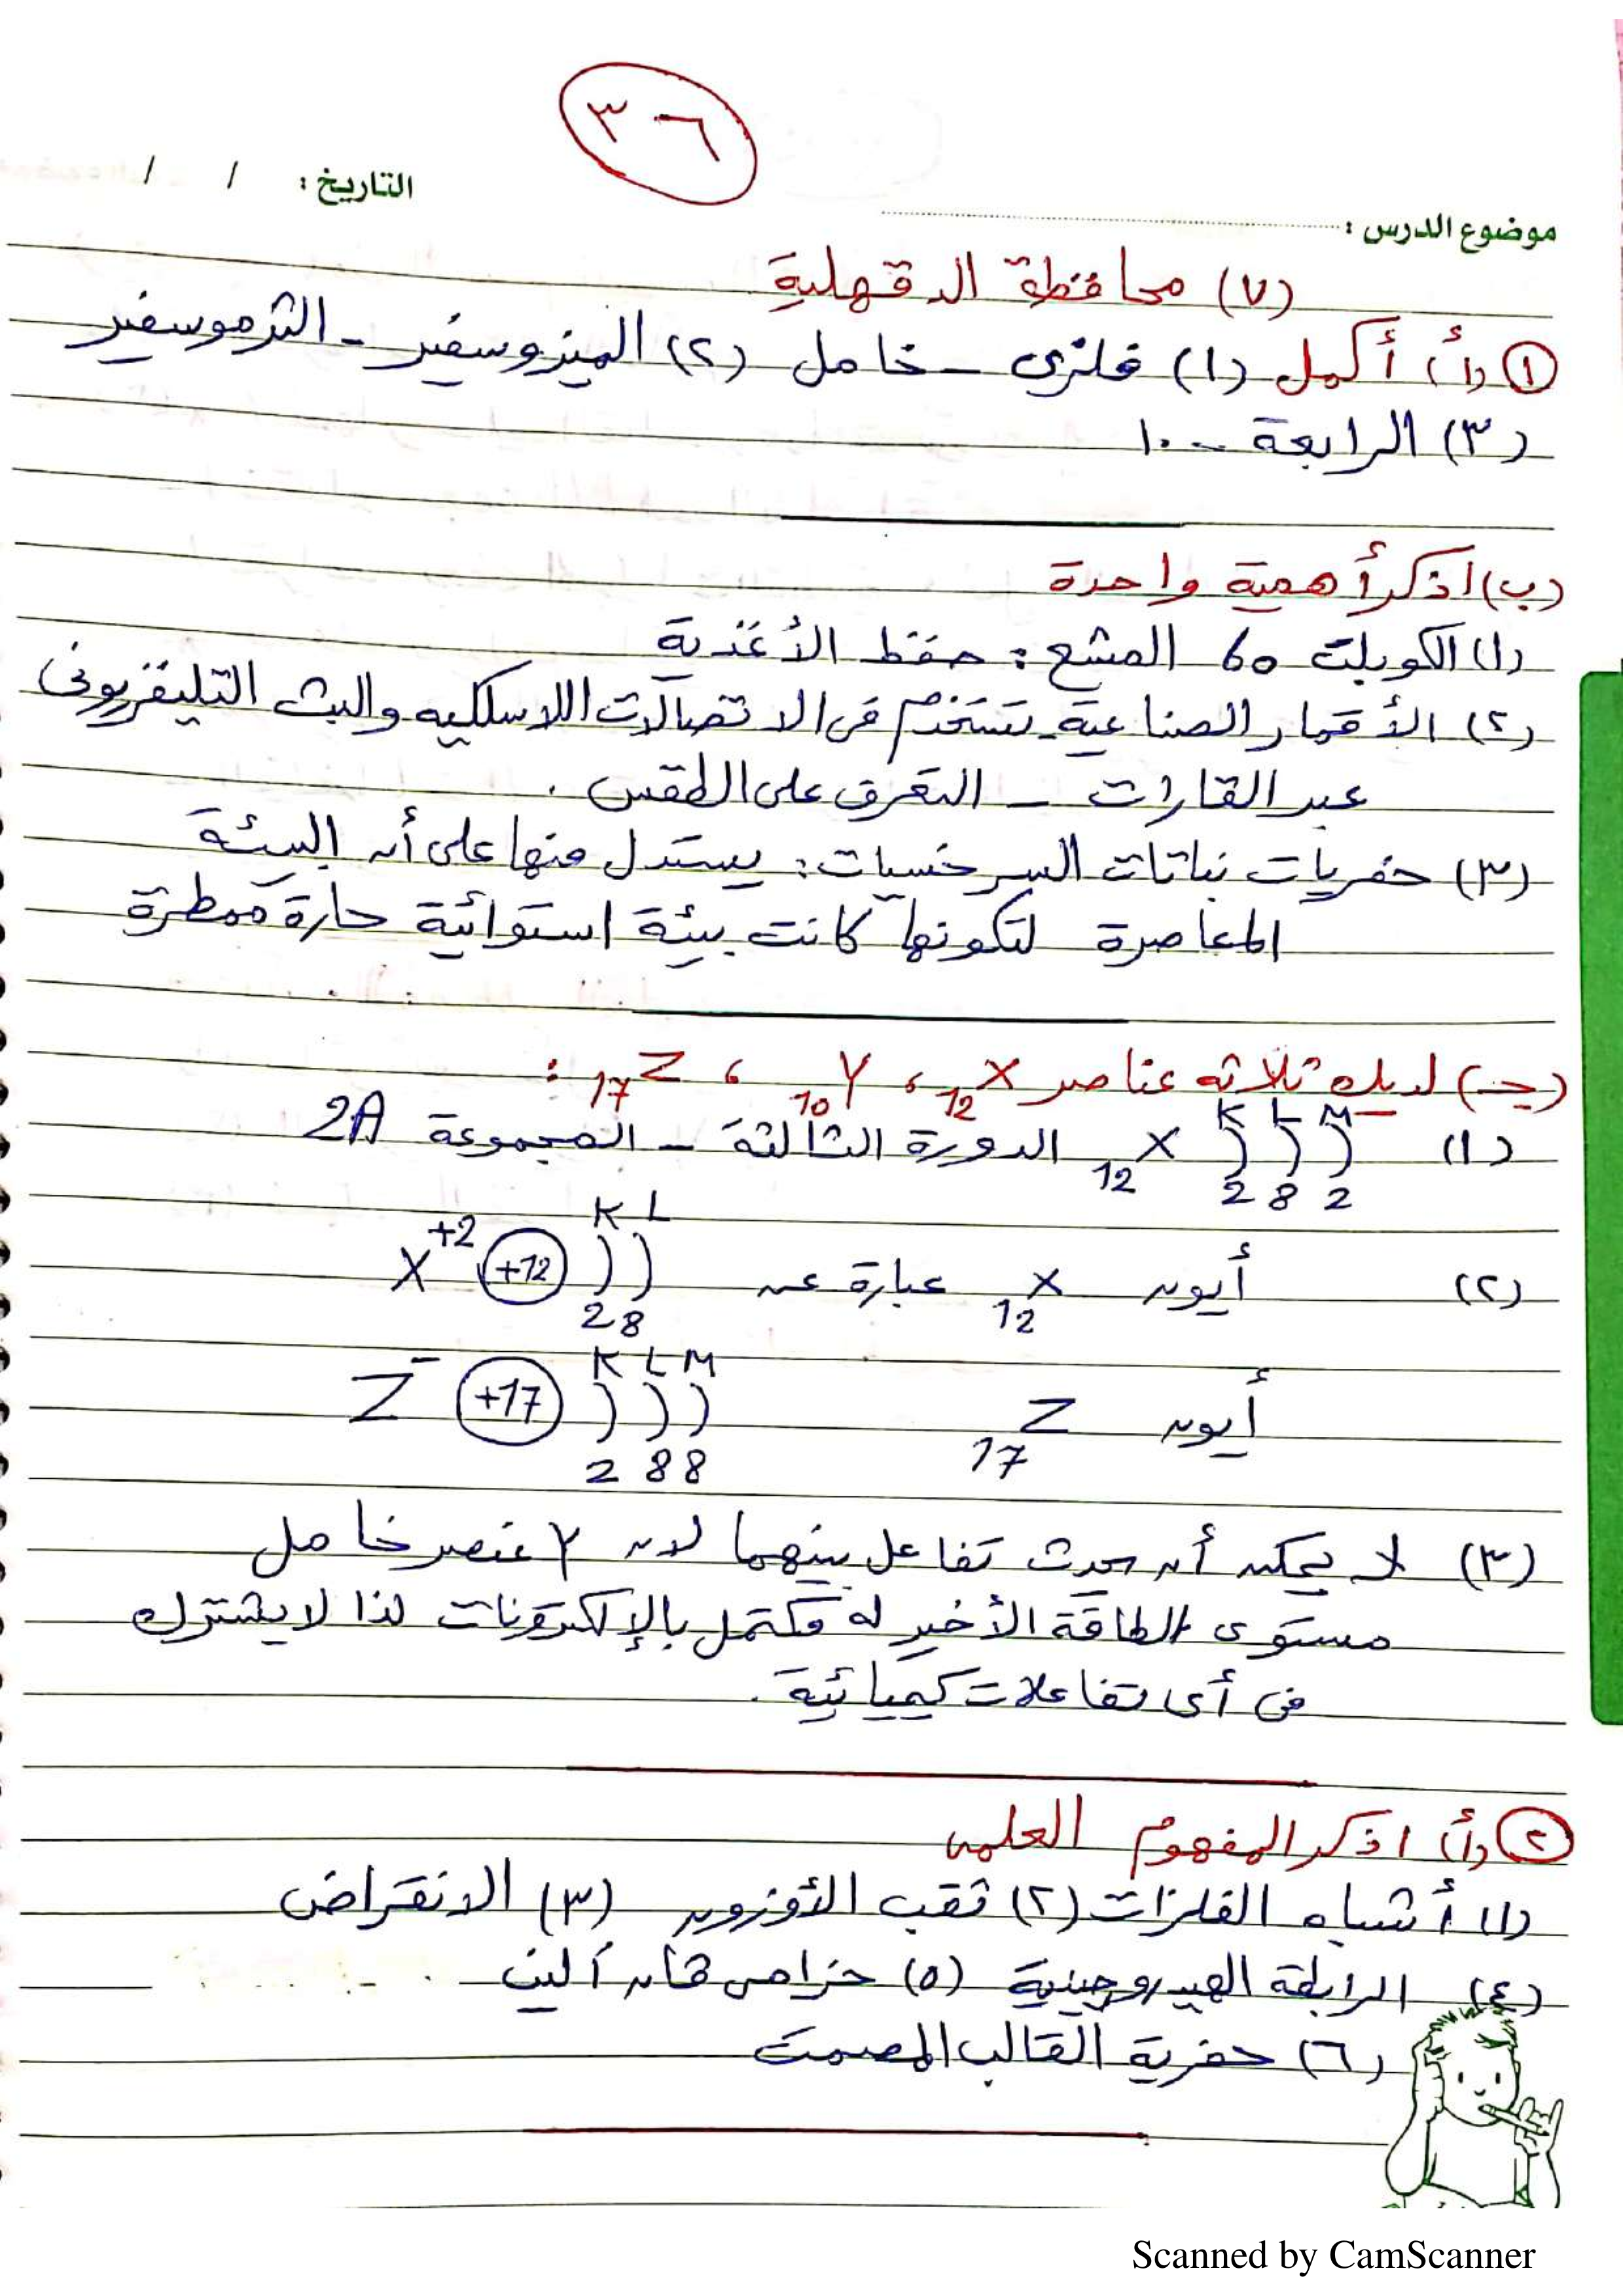 ٣٦
التاريخ : / /
موضوع الدرس :
(٧) محافظة الدقهلية
① (أ) أكمل (١) فلزى - خامل (٢) الميزوسفير - الثرموسفير
(٣) الرابعة - ١٠
(ب) اذكر أهمية واحدة
(١) الكوبلت 60 المشع : حفظ الأغذية
(٢) الأقمار الصناعية - تستخدم فى الاتصالات اللاسلكيه والبث التليفزيونى
عبر القارات - التعرف على الطقس .
(٣) حفريات نباتات السرخسيات : يستدل منها على أن البيئة
المعاصرة لتكونها كانت بيئة استوائية حارة ممطرة
(جـ) لديك ثلاثه عناصر ₁₂X ، ₁₀Y ، ₁₇Z :
K L M
(١) ₁₂X ) ) ) الدورة الثالثة - المجموعة 2A
2 8 2
K L
(٢) أيون ₁₂X عبارة عن X⁺² (+12) ) )
2 8
K L M
أيون ₁₇Z Z⁻ (+17) ) ) )
2 8 8
(٣) لا يمكن أن يحدث تفاعل بينهما لان Y عنصر خامل
مستوى الطاقة الأخير له مكتمل بالإلكترونات لذا لا يشترك
فى أى تفاعلات كيميائية .
② (أ) اذكر المفهوم العلمى
(١) أشباه الفلزات (٢) ثقب الأوزون (٣) الانقراض
(٤) الرابطة الهيدروجينية (٥) حزامى ڤان ألين
(٦) حفرية القالب المصمت
Scanned by CamScanner